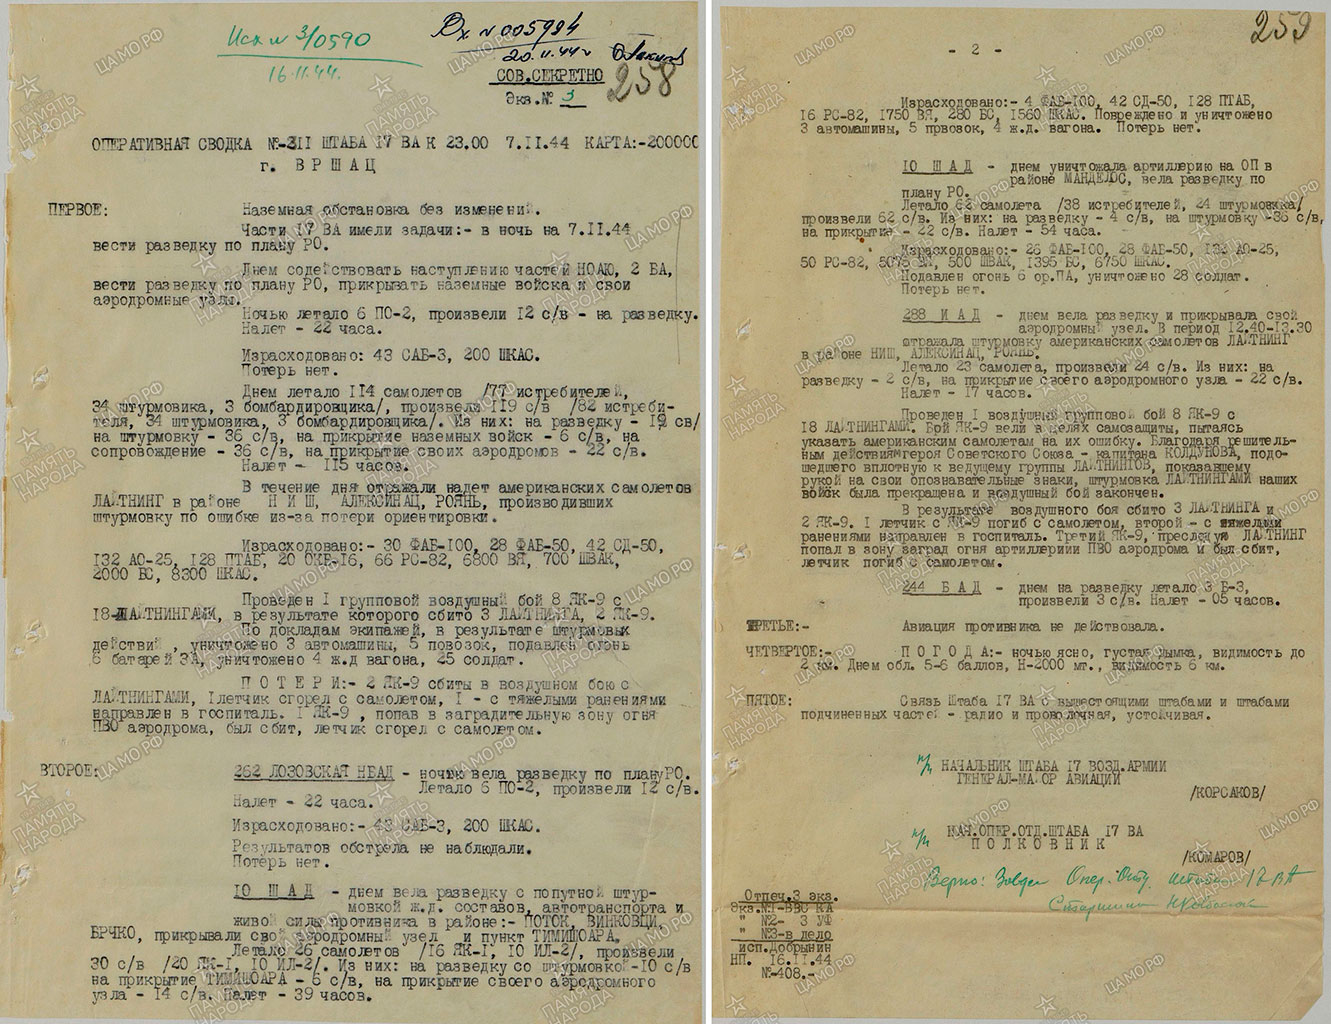 Исх № 3/0590
16.11.44.
Вх № 005994
20.11.44г
СОВ.СЕКРЕТНО
258
Экз.№ 3
ОПЕРАТИВНАЯ СВОДКА №-311 ШТАБА 17 ВА К 23.00 7.11.44 КАРТА:-200000
г. ВРШАЦ
ПЕРВОЕ: Наземная обстановка без изменений.
Части 17 ВА имели задачи:- в ночь на 7.11.44
вести разведку по плану РО.
Днем содействовать наступлению частей НОАЮ, 2 БА,
вести разведку по плану РО, прикрывать наземные войска и свои
аэродромные узлы.
Ночью летало 6 ПО-2, произвели 12 с/в - на разведку.
Налет - 22 часа.
Израсходовано: 43 САБ-3, 200 ШКАС.
Потерь нет.
Днем летало 114 самолетов /77 истребителей,
34 штурмовика, 3 бомбардировщика/, произвели 119 с/в /82 истреби-
теля, 34 штурмовика, 3 бомбардировщика/. Из них: на разведку - 19 св/
на штурмовку - 36 с/в, на прикрытие наземных войск - 6 с/в, на
сопровождение - 36 с/в, на прикрытие своих аэродромов - 22 с/в.
Налет - 115 часов.
В течение дня отражали налет американских самолетов
ЛАЙТНИНГ в районе НИШ, АЛЕКСИНАЦ, РОЯНЬ, производивших
штурмовку по ошибке из-за потери ориентировки.
Израсходовано:- 30 ФАБ-100, 28 ФАБ-50, 42 СД-50,
132 АО-25, 128 ПТАБ, 20 ОКБ-16, 66 РС-82, 6800 ВЯ, 700 ШВАК,
2000 БС, 8300 ШКАС.
Проведен 1 групповой воздушный бой 8 ЯК-9 с
18-ЛАЙТНИНГАМИ, в результате которого сбито 3 ЛАЙТНИНГА, 2 ЯК-9.
По докладам экипажей, в результате штурмовых
действий, уничтожено 3 автомашины, 5 повозок, подавлен огонь
6 батарей ЗА, уничтожено 4 ж.д вагона, 25 солдат.
ПОТЕРИ:- 2 ЯК-9 сбиты в воздушном бою с
ЛАЙТНИНГАМИ, 1летчик сгорел с самолетом, 1 - с тяжелыми ранениями
направлен в госпиталь. 1 ЯК-9 , попав в заградительную зону огня
ПВО аэродрома, был сбит, летчик сгорел с самолетом.
ВТОРОЕ: 262 ЛОЗОВСКАЯ НБАД - ночью вела разведку по плану РО.
Летало 6 ПО-2, произвели 12 с/в.
Налет - 22 часа.
Израсходовано:- 43 САБ-3, 200 ШКАС.
Результатов обстрела не наблюдали.
Потерь нет.
10 ШАД - днем вела разведку с попутной штур-
мовкой ж.д. составов, автотранспорта и
живой силы противника в районе:- ПОТОК, ВИНКОВЦИ,
БРЧКО, прикрывали свой аэродромный узел и пункт ТИМИШОАРА.
Летало 26 самолетов /16 ЯК-1, 10 ИЛ-2/, произвели
30 с/в /20 ЯК-1, 10 ИЛ-2/. Из них: на разведку со штурмовкой-10 с/в
на прикрытие ТИМИШОАРА - 6 с/в, на прикрытие своего аэродромного
узла - 14 с/в. Налет - 39 часов.
259
- 2 -
Израсходовано:- 4 ФАБ-100, 42 СД-50, 128 ПТАБ,
16 РС-82, 1750 ВЯ, 280 БС, 1560 ШКАС. Повреждено и уничтожено
3 автомашины, 5 првозок, 4 ж.д. вагона. Потерь нет.
10 ШАД - днем уничтожала артиллерию на ОП в
районе МАНДЕЛОС, вела разведку по
плану РО.
Летало 62 самолета /38 истребителей, 24 штурмовика/
произвели 62 с/в. Из них: на разведку - 4 с/в, на штурмовку -36 с/в,
на прикрытие - 22 с/в. Налет - 54 часа.
Израсходовано:- 26 ФАБ-100, 28 ФАБ-50, 132 АО-25,
50 РС-82, 5075 ВЯ, 500 ШВАК, 1395 БС, 6750 ШКАС.
Подавлен огонь 6 ор.ПА, уничтожено 28 солдат.
Потерь нет.
288 ИАД - днем вела разведку и прикрывала свой
аэродромный узел. В период 12.40-13.30
отражала штурмовку американских самолетов ЛАЙТНИНГ
в районе НИШ, АЛЕКСИНАЦ, РОЯНЬ.
Летало 23 самолета, произвели 24 с/в. Из них: на
разведку - 2 с/в, на прикрытие своего аэродромного узла - 22 с/в.
Налет - 17 часов.
Проведен 1 воздушный групповой бой 8 ЯК-9 с
18 ЛАЙТНИНГАМИ. Бой ЯК-9 вели в целях самозащиты, пытаясь
указать американским самолетам на их ошибку. Благодаря решитель-
ным действиям героя Советского Союза - капитана КОЛДУНОВА, подо-
шедшего вплотную к ведущему группы ЛАЙТНИНГОВ, показавшему
рукой на свои опознавательные знаки, штурмовка ЛАЙТНИНГАМИ наших
войск была прекращена и воздушный бой закончен.
В результате воздушного боя сбито 3 ЛАЙТНИНГА и
2 ЯК-9. 1 летчик с ЯК-9 погиб с самолетом, второй - с тяжелыми
ранениями направлен в госпиталь. Третий ЯК-9, преследуя ЛАЙТНИНГ
попал в зону заград огня артиллериии ПВО аэродрома и был сбит,
летчик погиб с самолетом.
244 БАД - днем на разведку летало 3 Б-3,
произвели 3 с/в. Налет - 05 часов.
ТРЕТЬЕ:- Авиация противника не действовала.
ЧЕТВЕРТОЕ:- ПОГОДА:- ночью ясно, густая дымка, видимость до
2 км. Днем обл. 5-6 баллов, Н-2000 мт., видимость 6 км.
ПЯТОЕ: Связь Штаба 17 ВА с вышестоящими штабами и штабами
подчиненных частей - радио и проволочная, устойчивая.
п/п НАЧАЛЬНИК ШТАБА 17 ВОЗД.АРМИИ
ГЕНЕРАЛ-МАЙОР АВИАЦИИ
/КОРСАКОВ/
п/п НАЧ.ОПЕР.ОТД.ШТАБА 17 ВА
ПОЛКОВНИК
/КОМАРОВ/
Верно: Завдел Опер. Отд. штаба 17 ВА
Отпеч.3 экз.
Экз.№1-ВВС КА
" №2- 3 УФ
" №3-в дело
исп.Добрынин
НП. 16.11.44
№-408.-